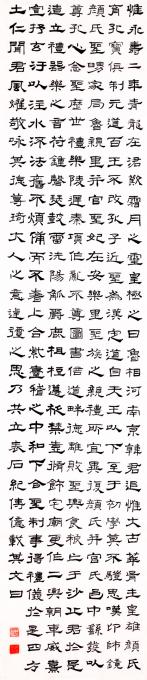 惟永壽二年青龍在涒歎霜月之靈皇極之日魯相河南京韓君追惟大古華胥生皇雄顏氏
育孔寶俱制元道百王不改孔子近聖為漢定道自天王以下至于初學莫不䭴思嘆卬師鏡
顏氏聖舅家居魯親里并官聖妃在安樂里聖族之親禮所宜異復顏氏并官氏邑中繇發以
尊孔心念聖歷世禮樂陵遲秦項作亂不尊圖書倍道畔德離敗聖輿食糧亡于沙丘君於是
造立禮器樂之音符鍾磬瑟鼓雷洗觴觚爵鹿柤梪籩柉禁壺脩飾宅廟更作二輿朝車威熹
宣抒玄汙以注水流法舊不煩備而不奢上合紫臺稽之中和下合聖制事得禮儀於是四方
土仁聞君風燿敬咏其德尊琦大人之意逴彌之思乃共立表石紀傳億載其文曰